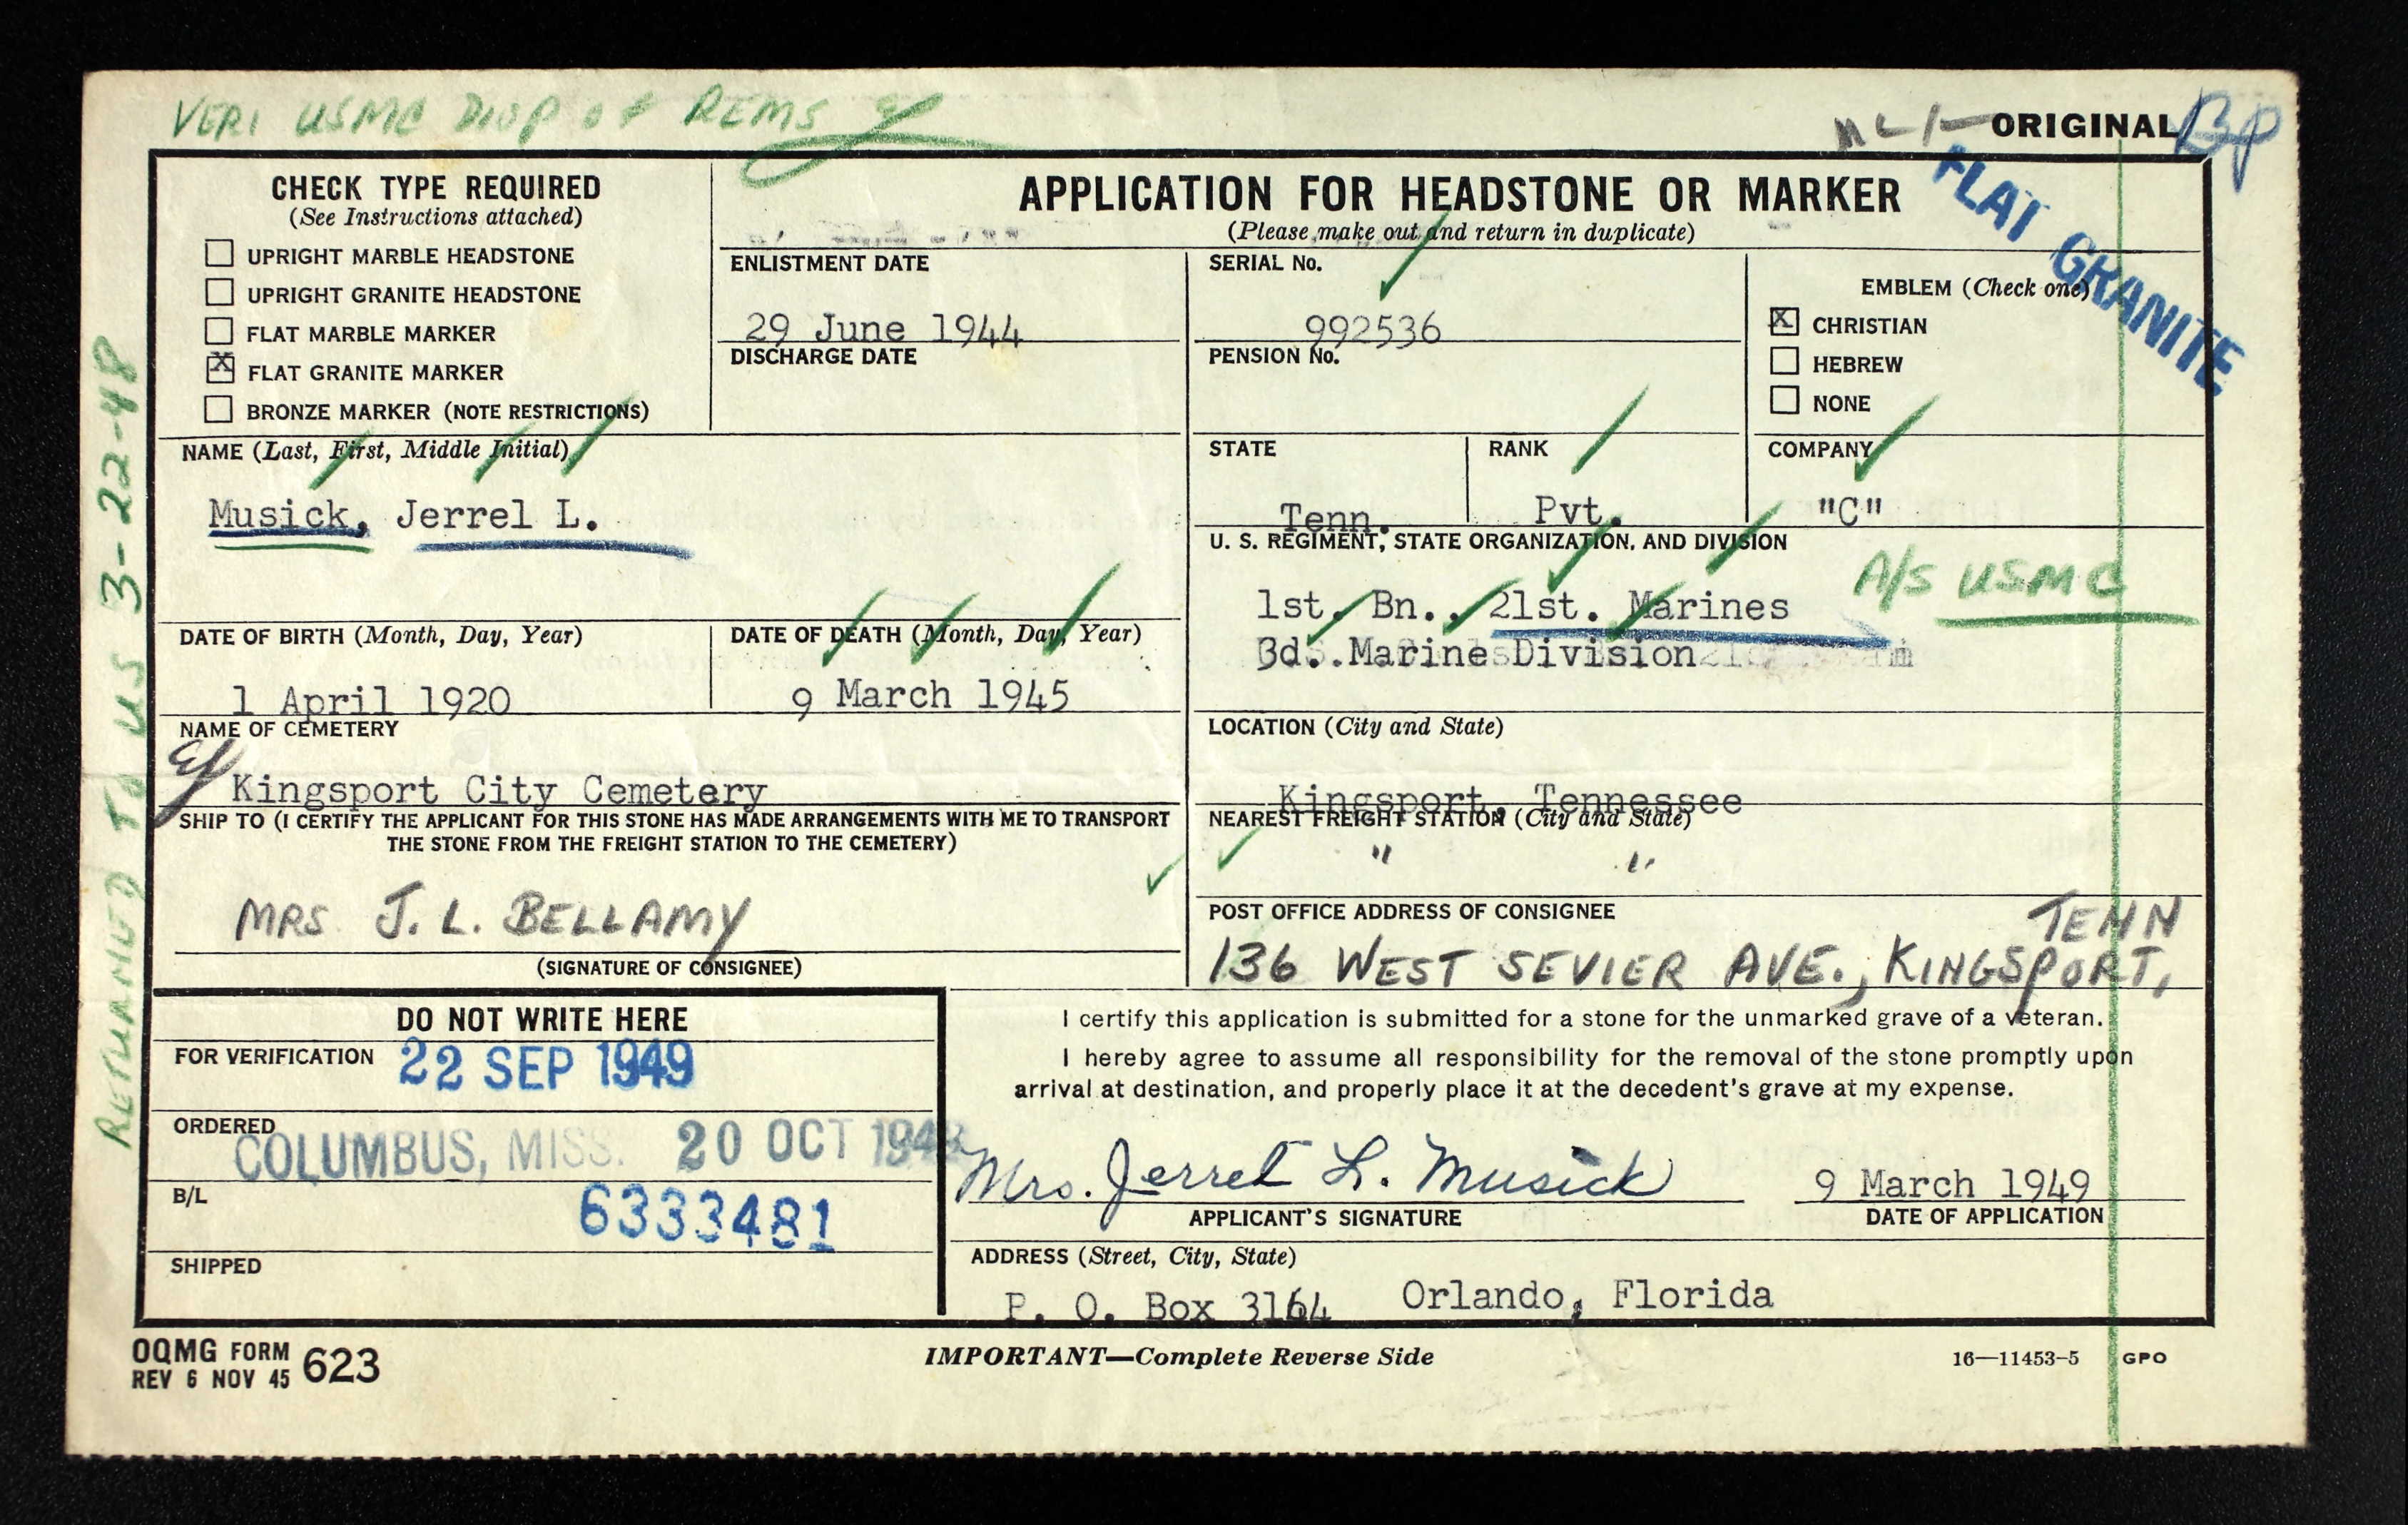 VERI USMC DISP OF REMS
ORIGINAL
BP
FLAT GRANITE
CHECK TYPE REQUIRED
(See Instructions attached)
UPRIGHT MARBLE HEADSTONE
UPRIGHT GRANITE HEADSTONE
FLAT MARBLE MARKER
X FLAT GRANITE MARKER
BRONZE MARKER (NOTE RESTRICTIONS)
APPLICATION FOR HEADSTONE OR MARKER
(Please make out and return in duplicate)
ENLISTMENT DATE
29 June 1944
DISCHARGE DATE
SERIAL No.
992536
PENSION No.
EMBLEM (Check one)
X CHRISTIAN
HEBREW
NONE
NAME (Last, First, Middle Initial)
Musick, Jerrel L.
STATE
Tenn.
RANK
Pvt.
COMPANY
"C"
U. S. REGIMENT, STATE ORGANIZATION, AND DIVISION
1st. Bn., 21st. Marines
3d. Marine Division
A/S USMC
DATE OF BIRTH (Month, Day, Year)
1 April 1920
DATE OF DEATH (Month, Day, Year)
9 March 1945
NAME OF CEMETERY
Kingsport City Cemetery
LOCATION (City and State)
Kingsport, Tennessee
SHIP TO (I CERTIFY THE APPLICANT FOR THIS STONE HAS MADE ARRANGEMENTS WITH ME TO TRANSPORT
THE STONE FROM THE FREIGHT STATION TO THE CEMETERY)
MRS. J. L. BELLAMY
(SIGNATURE OF CONSIGNEE)
NEAREST FREIGHT STATION (City and State)
" "
POST OFFICE ADDRESS OF CONSIGNEE
136 WEST SEVIER AVE., KINGSPORT,
TENN
DO NOT WRITE HERE
FOR VERIFICATION 22 SEP 1949
ORDERED
COLUMBUS, MISS. 20 OCT
B/L
6333481
SHIPPED
I certify this application is submitted for a stone for the unmarked grave of a veteran.
I hereby agree to assume all responsibility for the removal of the stone promptly upon
arrival at destination, and properly place it at the decedent's grave at my expense.
Mrs. Jerrel L. Musick
APPLICANT'S SIGNATURE
9 March 1949
DATE OF APPLICATION
ADDRESS (Street, City, State)
P. O. Box 3164 Orlando, Florida
OQMG FORM 623
REV 6 NOV 45
IMPORTANT—Complete Reverse Side
16—11453-5 GPO
RETURNED TO US 3-22-48